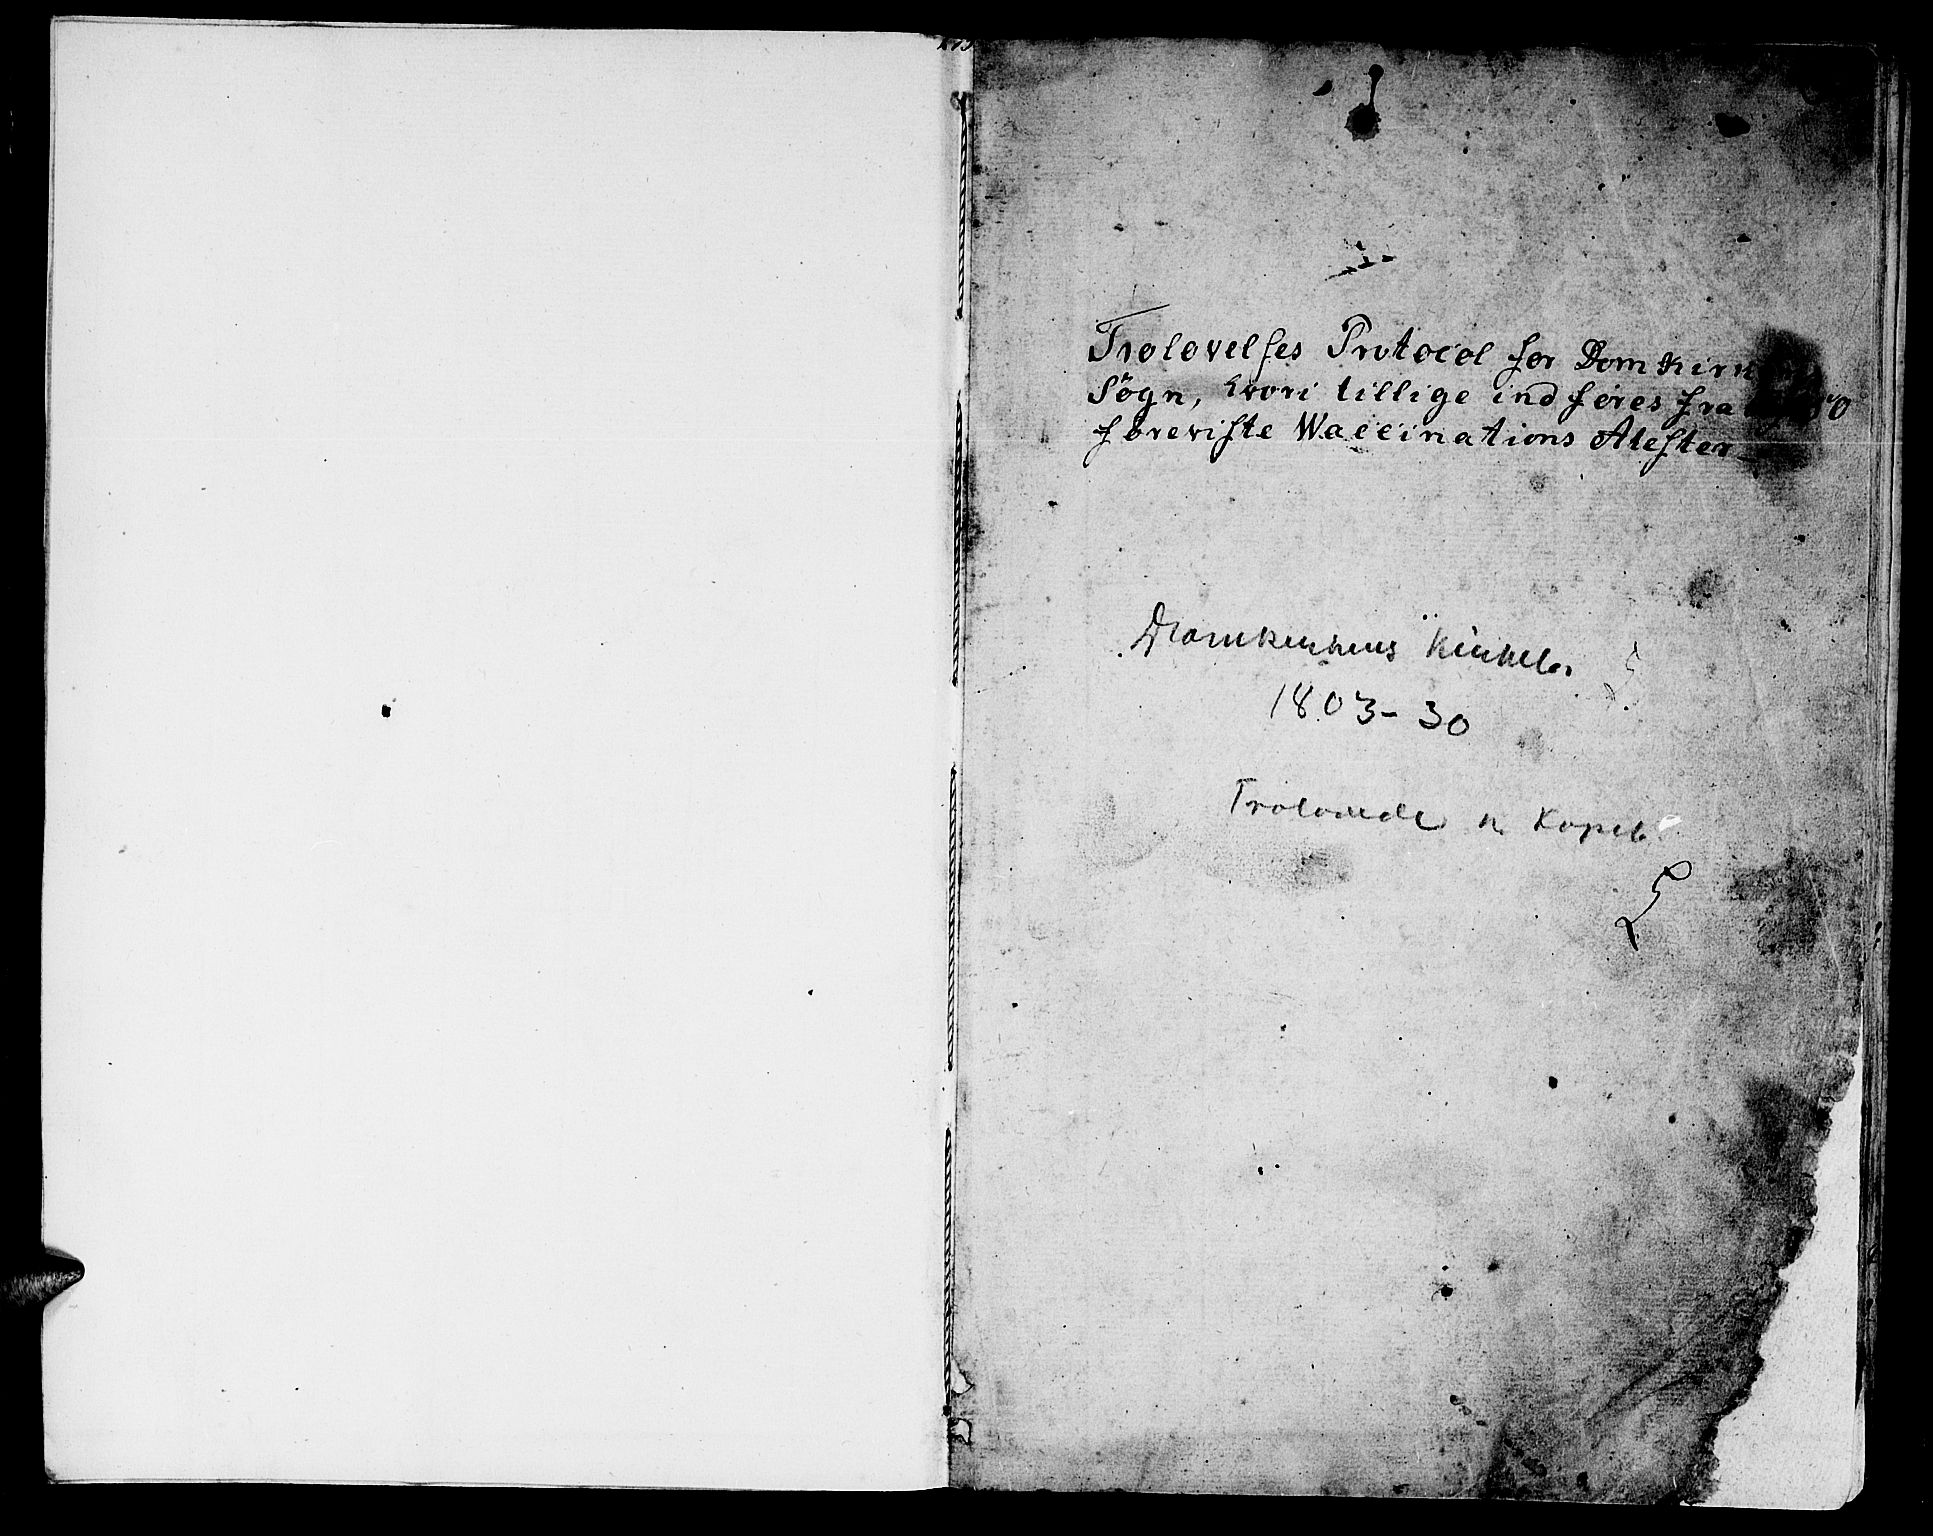 Trolovelses Protocol for Domkirkens
Sögn, hvori tillige indføres fra
foreviste Waccinations Atester
Domkirkens Kirkeb.
1803-30
Trolovede n Kopul.